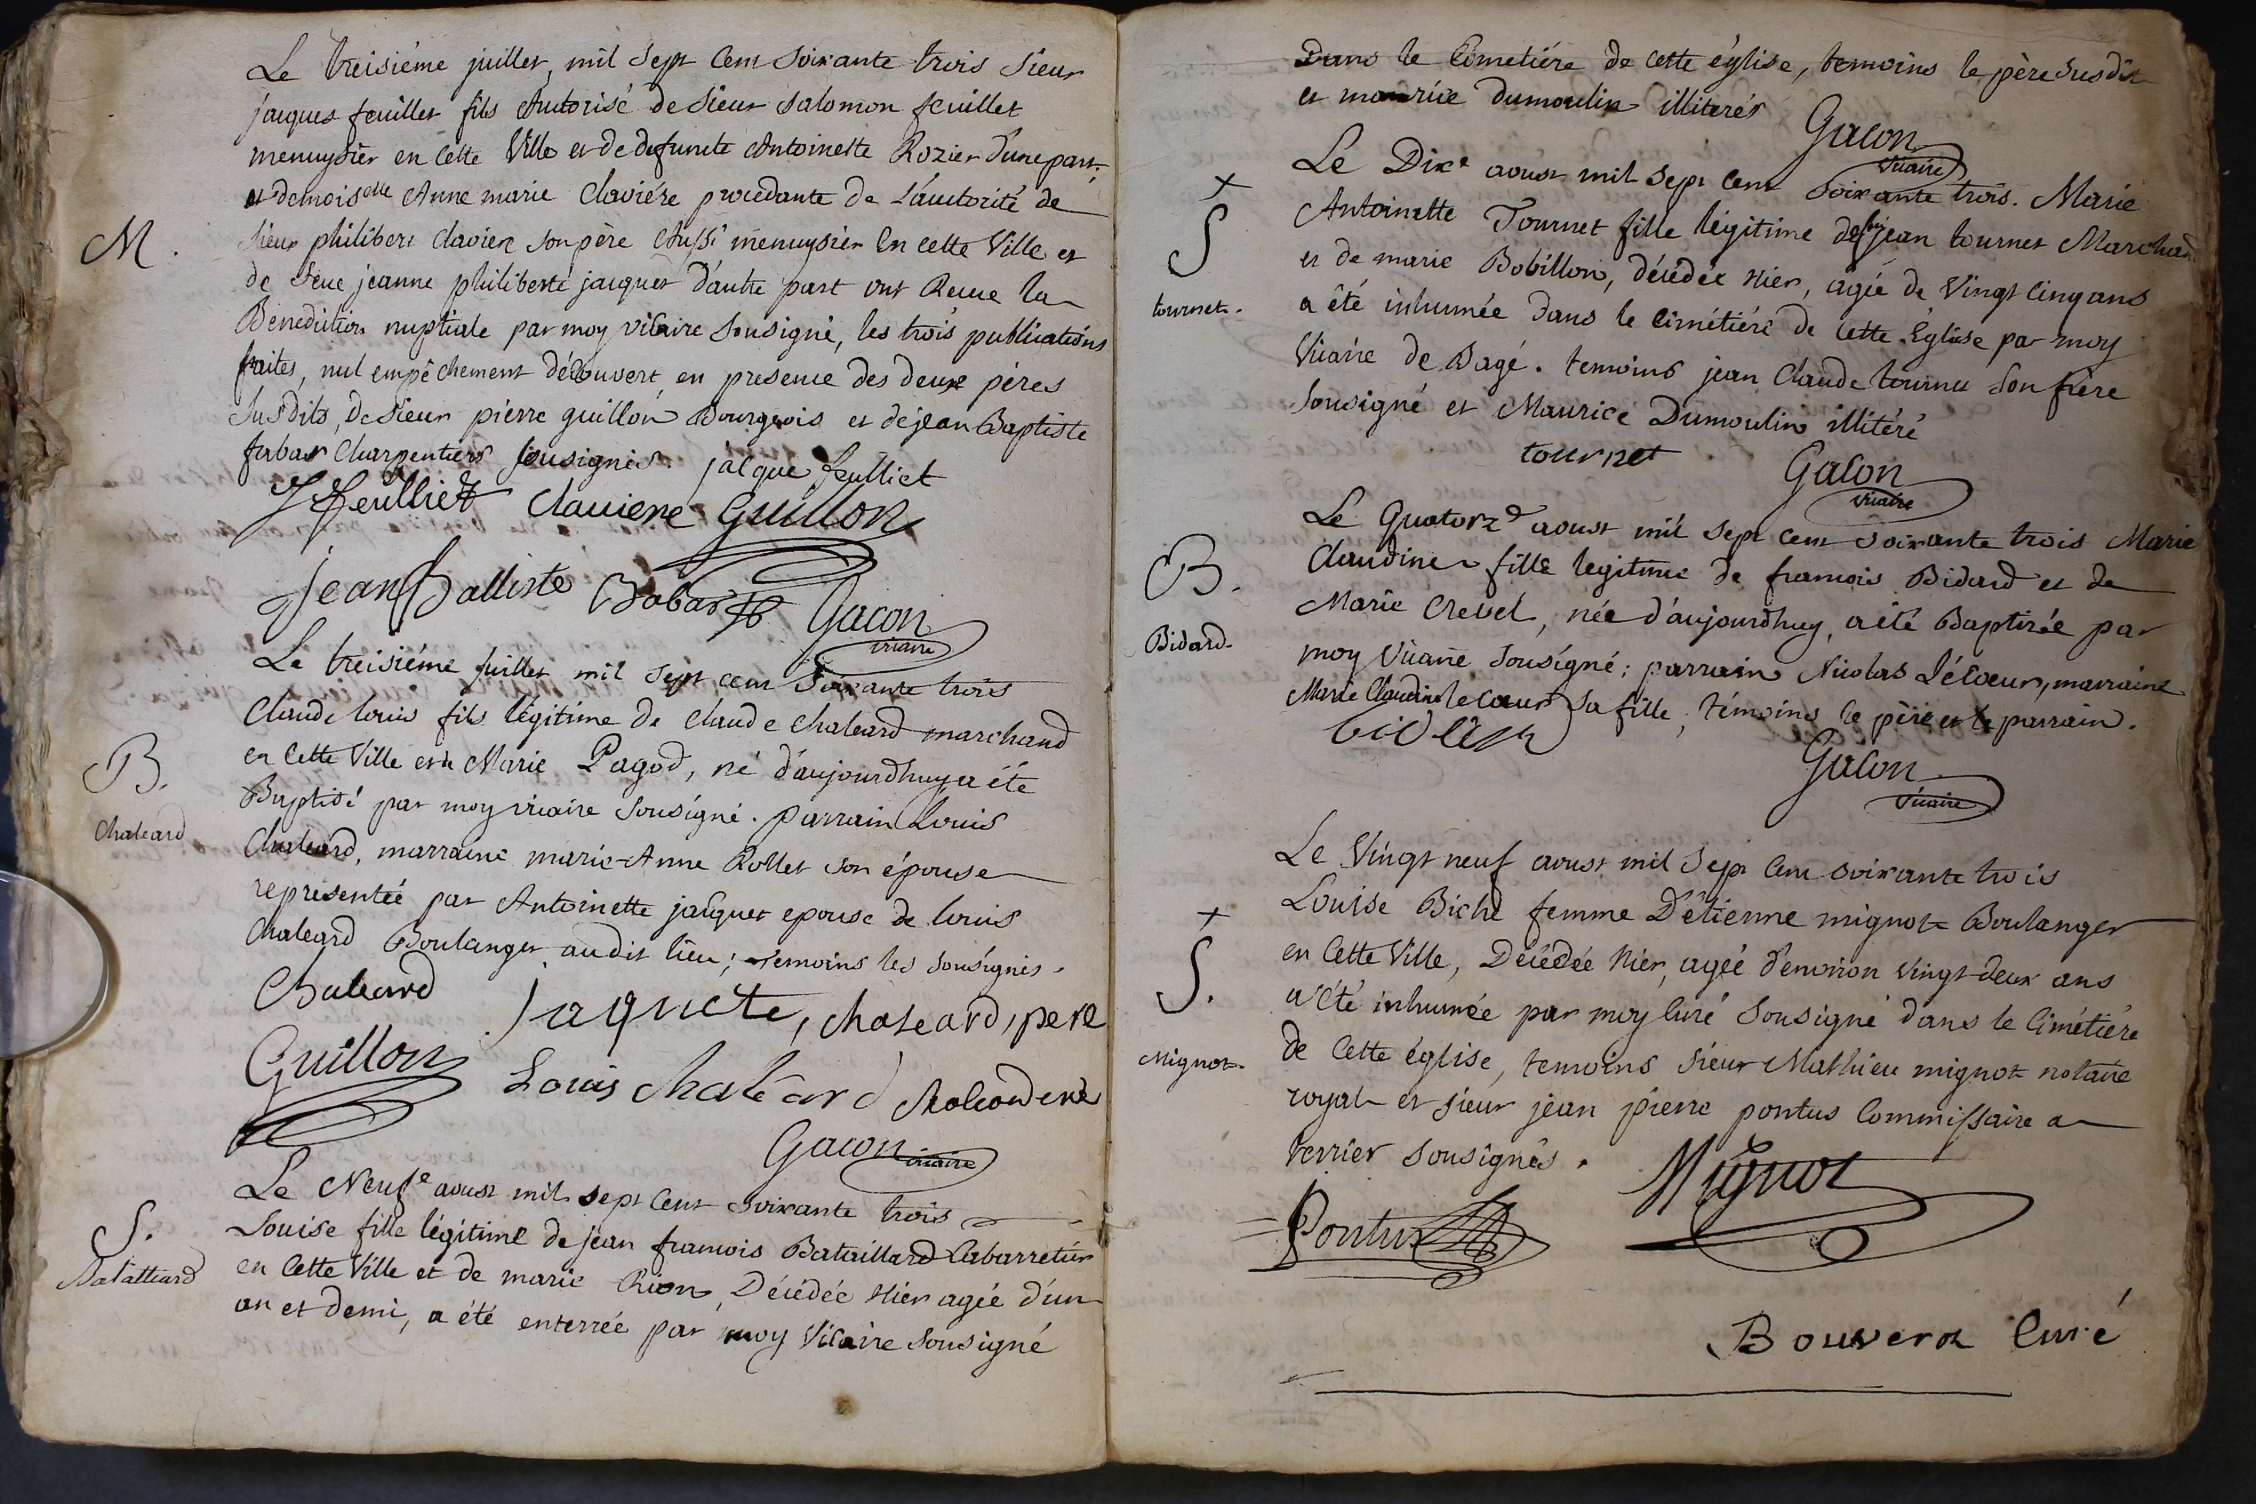 Le treisiéme juillet, mil sept cent soixante trois sieur
jacques feuillet fils Autorisé de sieur salomon feuillet
menuysier en cette Ville et de defunte Antoinette Rozier d'une part.
et demois.elle Anne marie Claviére procedante de L'autorité de
M.
sieur philibert claviere son père Aussi menuysier En cette Ville et
de feue jeanne philiberte jacquet d'autre part ont Recue la
Benediction nuptiale par moy vicaire sousigné, les trois publications
faites, nul empêchement découvert, en presence des deux pères
susdits, de sieur pierre guillon Bourgeois et de jean Baptiste
Charpentiers sousignés. jacque feulliet
feulliet Clauiere Guillon
jean Battiste Babar
Gacon vicaire
Le treisiéme juillet mil sept cent soixante trois
Claude louis fils légitime de Claude Chaleard marchand
en cette Ville et de Marie Pagod, né d'aujourdhuy a été
B.
Chaleard
Baptisé par moy vicaire sousigné. parrain Louis
Chaleard, marraine marie-Anne Rollet son épouse
representée par Antoinette jacquet epouse de louis
Chaleard Boulanger audit lieu; temoins les sousignés.
Chaleard jaquete, chaleard, pere
Guillon Louis Chaléard
Gacon vicaire
Le Neufe aoust mil sept cent soixante trois
S.
Louise fille légitime de jean francois Bataillard Cabarretier
Batalliard
en cette Ville et de marie Rion, Décédée Hier agée d'un
an et demi, a été enterrée par moy Vicaire sousigné
Dans le Cimetiére de cette église, temoins le père susdit
et maurice dumoulin illiterés
Gacon vicaire
Le Dixe aoust mil sept cent soixante trois. Marie
S
tournet.
Antoinette Tournet fille légitime de feu jean tournet Marchand
et de marie Bobillon, décédée Hier, agée de Vingt cinq ans
a été inhumée dans le cimétiére de cette Eglise par moy
Vicaire de Bagé. temoins jean Claude tournet son frere
sousigné et Maurice Dumoulin illitéré
tournet Gacon vicaire
Le Quatorze aoust mil sept cent soixante trois Marie
B.
Bidard.
Claudine fille legitime de francois Bidard et de
Marie Crevel, née d'aujourdhuy, a été Baptizée par
moy Vicaire sousigné; parrain Nicolas Lécoeur, marraine
Marie Claudine lecoeur sa fille, témoins le père et le parrain.
Gacon vicaire
Le Vingt neuf aoust mil sept cent soixante trois
S.
Mignot.
Louise Biche femme D'étienne mignot Boulanger
en cette Ville, Décédée Hier, agée d'environ vingt-deux ans
a été inhumée par moy Curé sousigné dans le Cimétiére
de cette église, temoins sieur Mathieu mignot notaire
royal et sieur jean pierre pontus Commissaire a
terrier sousignés.
Pontus Mignot
Bouverot Curé